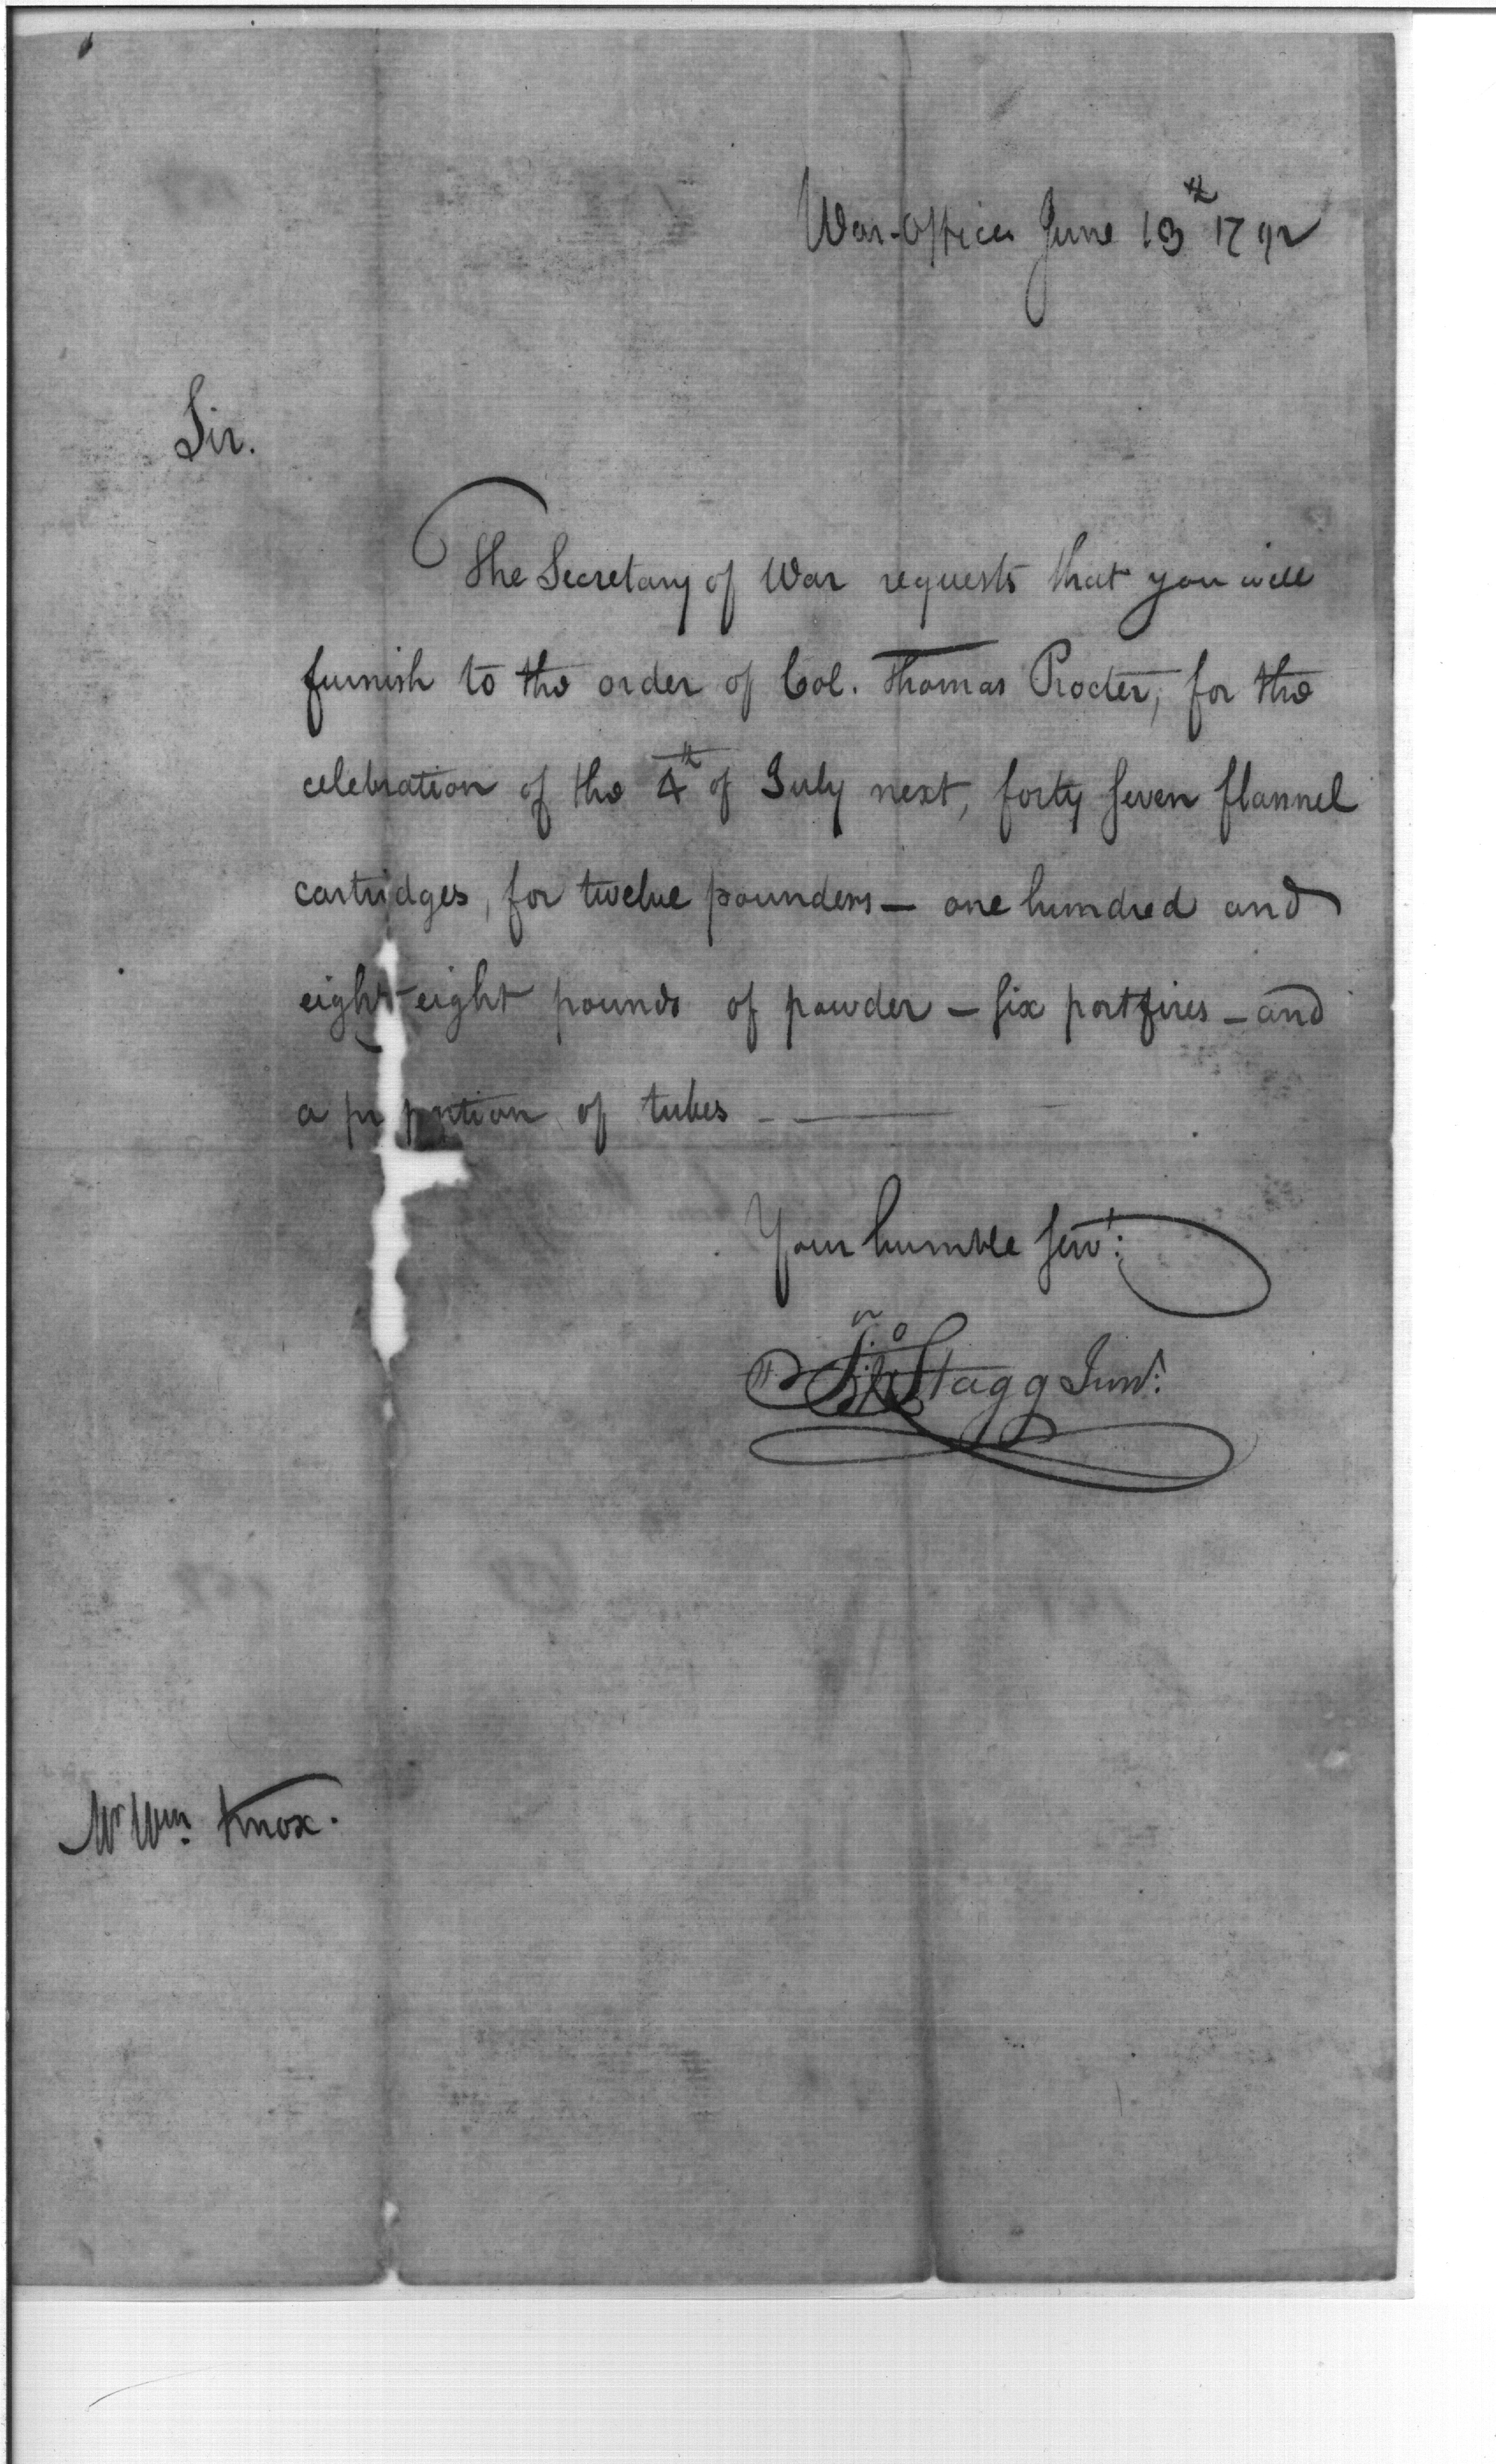 War-Office June 13th 1792
Sir.
The Secretary of War requests that you will
furnish to the order of Col. Thomas Procter, for the
celebration of the 4th of July next, forty seven flannel
cartridges, for twelve pounders — one hundred and
eighty-eight pounds of powder — six portfires — and
a pr portion of tubes —
Your humble servt:
Jno Stagg Junr:
Mr Wm. Knox.